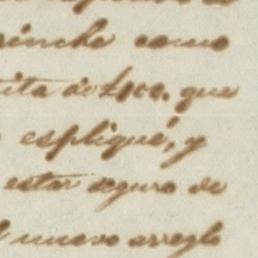 como
ita de £400. que
espliqué, y
estar seguro de
nuevo arreglo